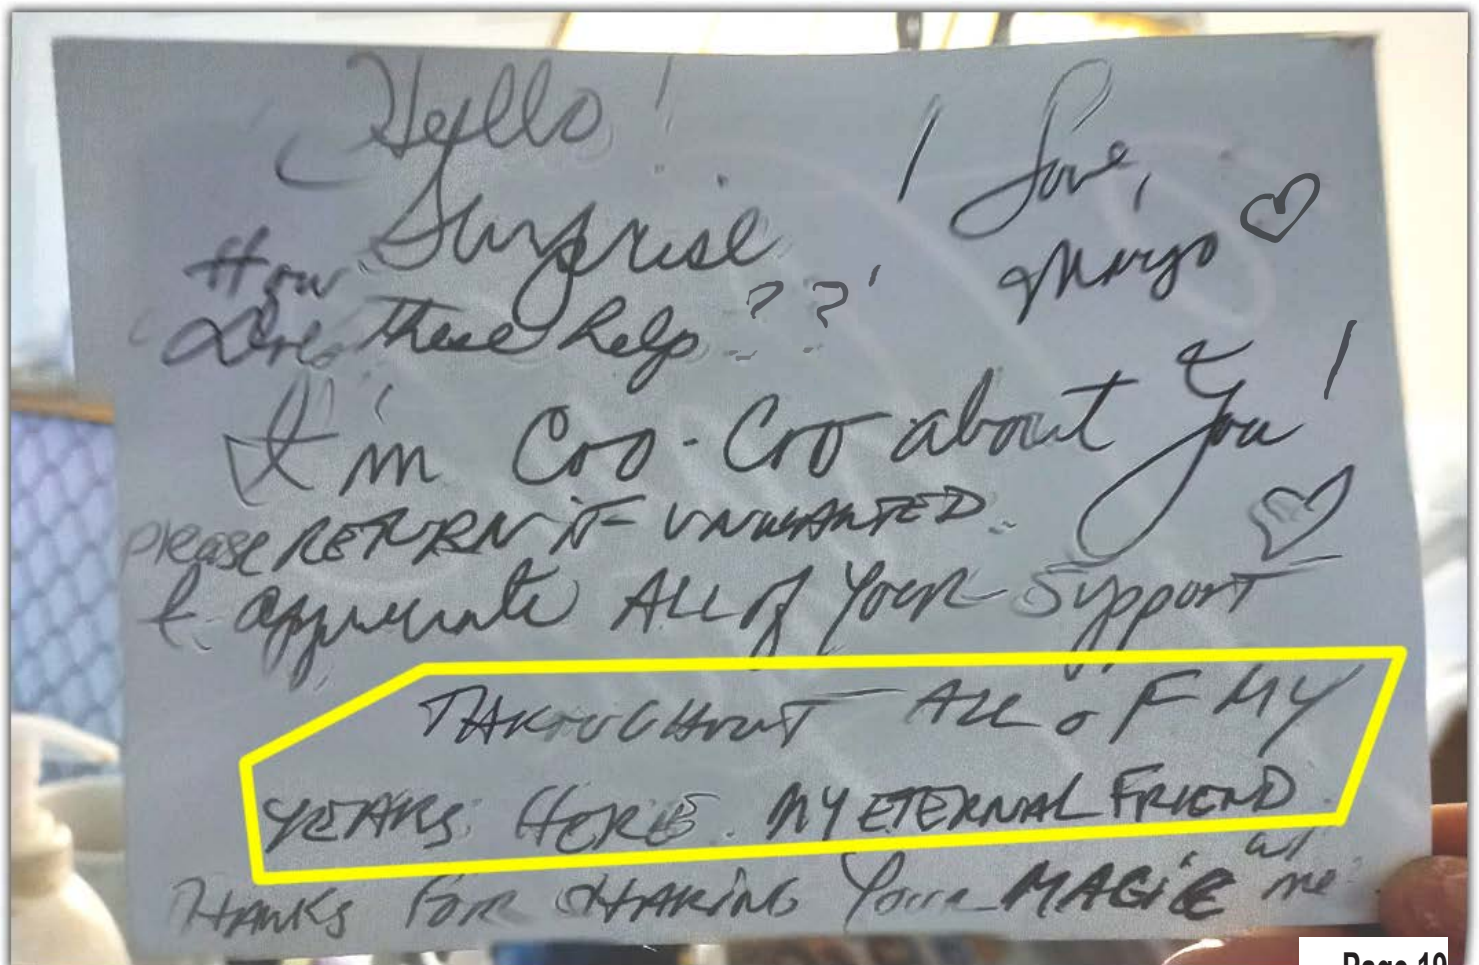 Hello!
Surprise!
Love,
Margo ♡
How
Are these help??
I'm Coo-Coo about You!
please RETURN IF UNWANTED.
& appreciate ALL of Your Support ♡
THROUGHOUT ALL OF MY
YEARS HERE. MY ETERNAL FRIEND.
THANKS FOR SHARING Your MAGIC w/ me
Page 19